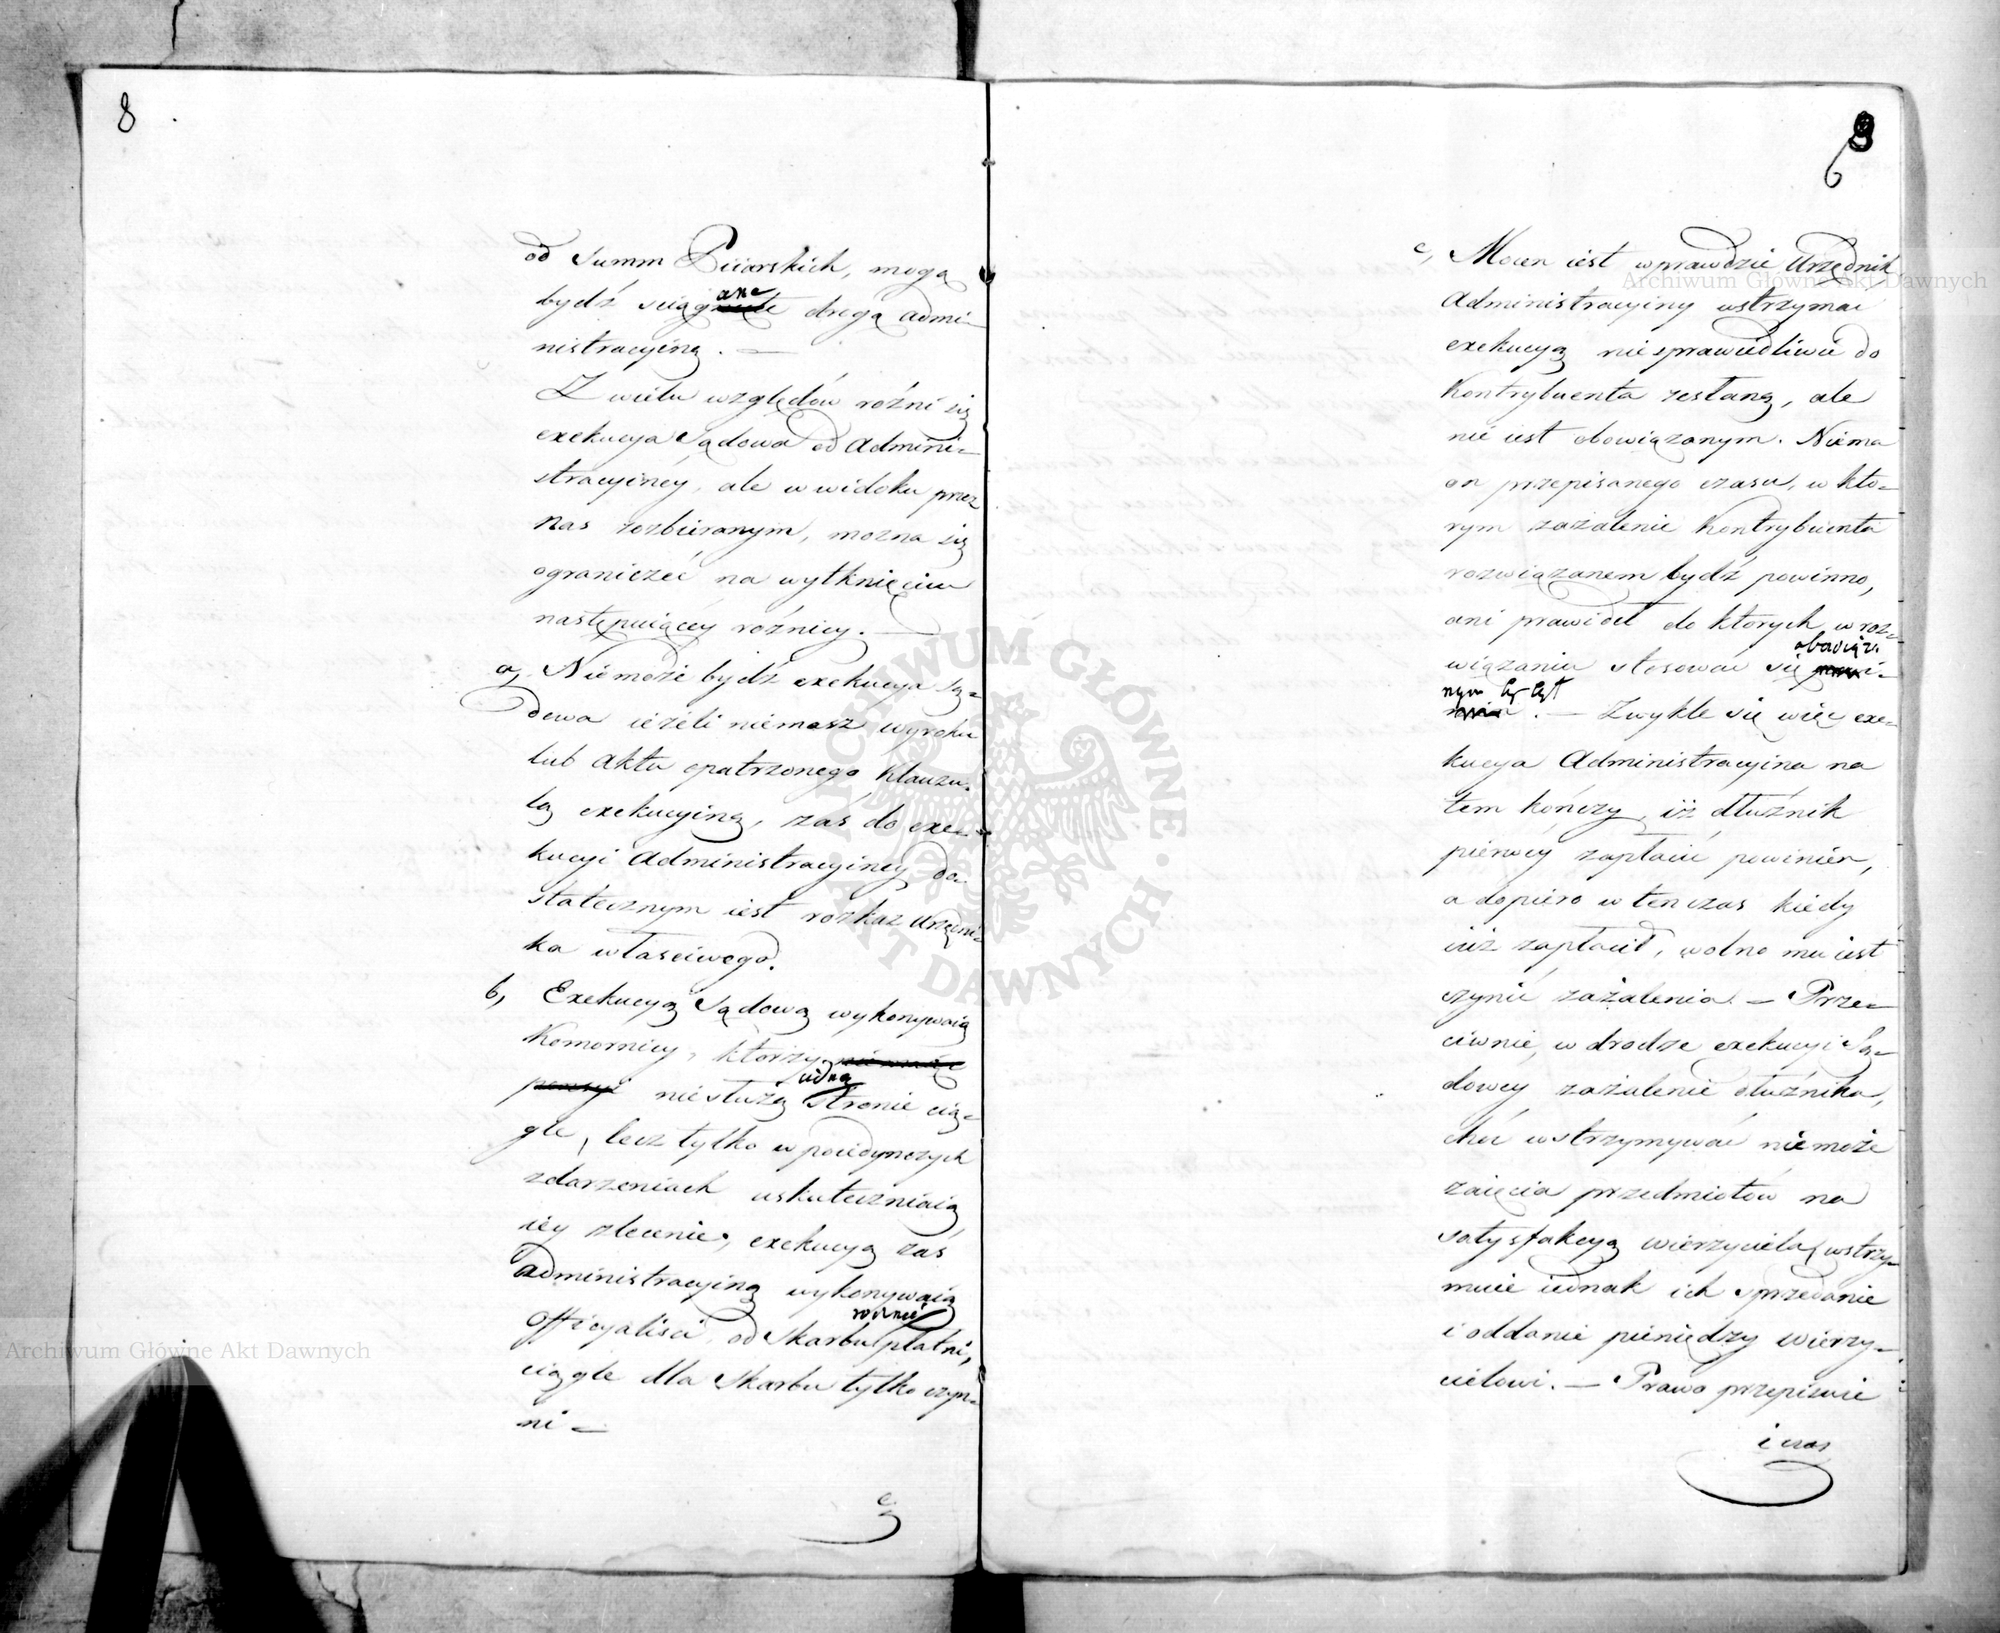 8
od Summ Piiarskich, mogą
bydź ściągane drogą admi-
nistracyiną. —
Z wielu względów rożni się
exekucya Sądowa od Admini-
stracyinéy, ale w widoku przez
nas rozbieranym, można się
ograniczéć na wytknięciu
następuiącéy rożnicy. —
a, Niemoże bydź exekucya Są-
dowa ieżeli niemasz wyroku
lub aktu opatrzonego klauzu-
lą exekucyiną, zaś do exe-
kucyi administracyinéy do-
statecznym iest rozkaz Urzędni-
ka właściwego.
b, Exekucyą Sądową wykonywaią
Komornicy, którzy
niesłużą iedną stronie cią-
gle, lecz tylko w poiedynczych
zdarzeniach uskuteczniaią
iéy zlecenie, exekucyą zaś
administracyiną wykonywaią
Officyaliści od Skarbu rocznie płatni,
ciągle dla Skarbu tylko czyn-
ni —
c,
8
6
c, Mocen iest wprawdzie Urzędnik
Administracyiny wstrzymać
exekucyą niesprawiedliwie do
Kontrybuenta zesłaną, ale
nie iest obowiązanym. Niema
on przepisanego czasu, w któ-
rym zażalenie Kontrybuenta
rozwiązanem bydź powinno,
ani prawideł do których w roz-
wiązaniu stosować się obowiąza-
nym by był. — Zwykle się więc exe-
kucya Administracyina na
tem kończy, iż dłużnik
pierwéy zapłacić powinien,
a dopiero wtenczas kiedy
iuż zapłacił, wolno mu iest
czynić zażalenia. — Prze-
ciwnie, w drodze exekucyi Są-
dowéy zażalenie dłużnika,
choć wstrzymywać niemoże
zaięcia przedmiotów na
satysfakcyą wierzyciela, wstrzy-
muie iednak ich sprzedanie
i oddanie pieniędzy wierzy-
cielowi. — Prawo przepisuie
i czas
Archiwum Główne Akt Dawnych
Archiwum Główne Akt Dawnych
ARCHIWUM GŁÓWNE · AKT DAWNYCH ·